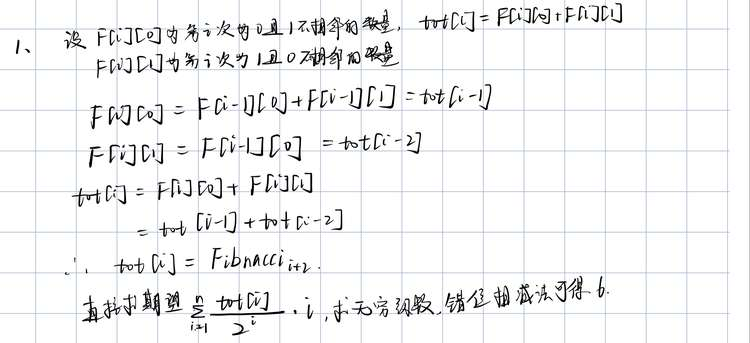 1、 设 F[i][0]为第i次为0且1不相邻的数量, tot[i] = F[i][0]+F[i][1]
F[i][1]为第i次为1且0不相邻的数量
F[i][0] = F[i-1][0]+F[i-1][1] = tot[i-1]
F[i][1] = F[i-1][0] = tot[i-2]
tot[i] = F[i][0]+ F[i][1]
= tot [i-1] + tot[i-2]
∴ tot[i] = Fibnacci i+2.
直接求期望 n∑i=1 tot[i]/2^i · i, 求无穷级数, 错位相减法可得 6.